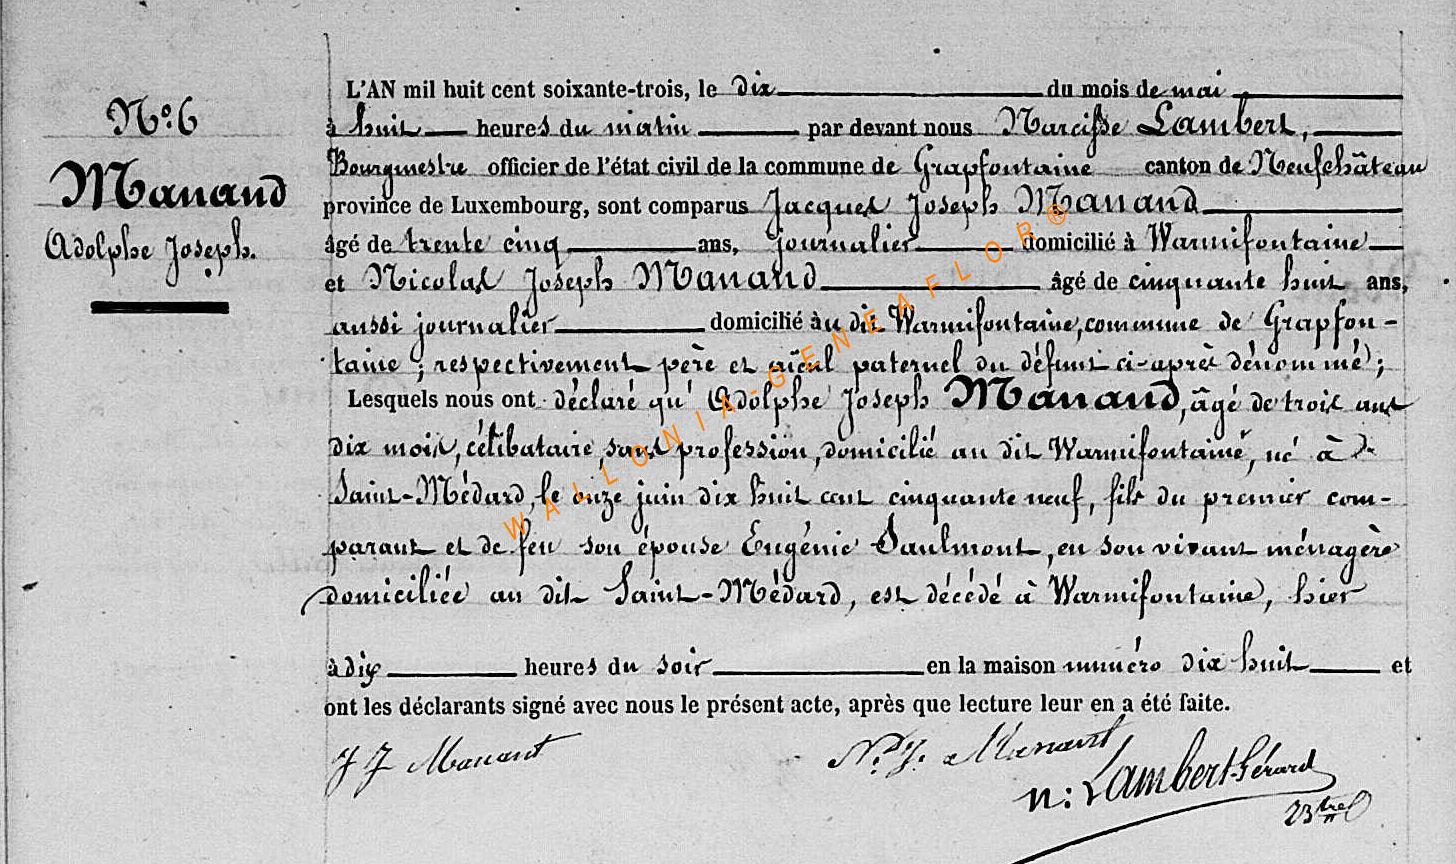 N° 6
Manand
Adolphe Joseph.
L'AN mil huit cent soixante-trois, le dix du mois de mai
à huit heures du matin par devant nous Narcisse Lambert,
Bourgmestre officier de l'état civil de la commune de Grapfontaine canton de Neufchâteau
province de Luxembourg, sont comparus Jacques Joseph Manand
âgé de trente cinq ans, journalier domicilié à Warmifontaine
et Nicolas Joseph Manand âgé de cinquante huit ans,
aussi journalier domicilié au dit Warmifontaine, commune de Grapfon-
taine ; respectivement père et aïeul paternel du défunt ci-après dénommé ;
Lesquels nous ont déclaré qu'Adolphe Joseph Manand, âgé de trois ans
dix mois, célibataire, sans profession, domicilié au dit Warmifontaine, né à
Saint-Médard, le onze juin dix huit cent cinquante neuf, fils du premier com-
parant et de feu son épouse Eugénie Saulmont, en son vivant ménagère
domiciliée au dit Saint-Médard, est décédé à Warmifontaine, hier
à dix heures du soir en la maison numéro dix huit et
ont les déclarants signé avec nous le présent acte, après que lecture leur en a été faite.
J J Manant N. J. Manant
n: Lambert-Gérard
WALLONIA-GENEAFLOR®